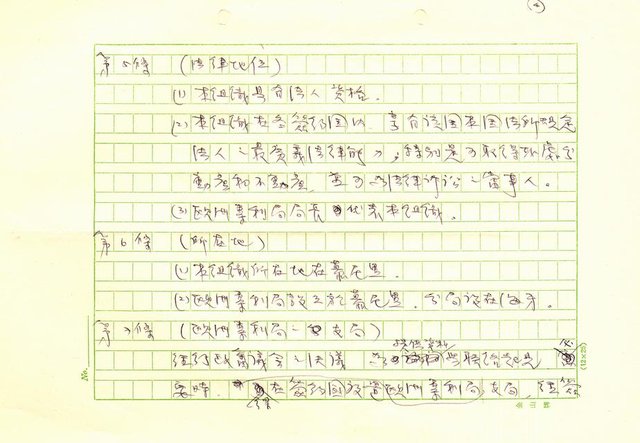 ④
第5條 (法律地位)
(1) 本組織具有法人資格.
(2) 本組織在各簽約國內 享有該國在國法所規定
法人之最廣義法律能力,特別是可取得或處分
動產和不動產,並可為法律訴訟之當事人.
(3) 歐洲專利局局長代表本組織.
第6條 (所在地)
(1) 本組織所在地在慕尼黑.
(2) 歐洲專利局設立於慕尼黑.分局設在海牙.
第7條 (歐洲專利局之支局)
提供資料
經行政委員會之決議 與聯絡 必
要時. 在簽約國設置歐洲專利局支局,經簽
No.
(12×25)